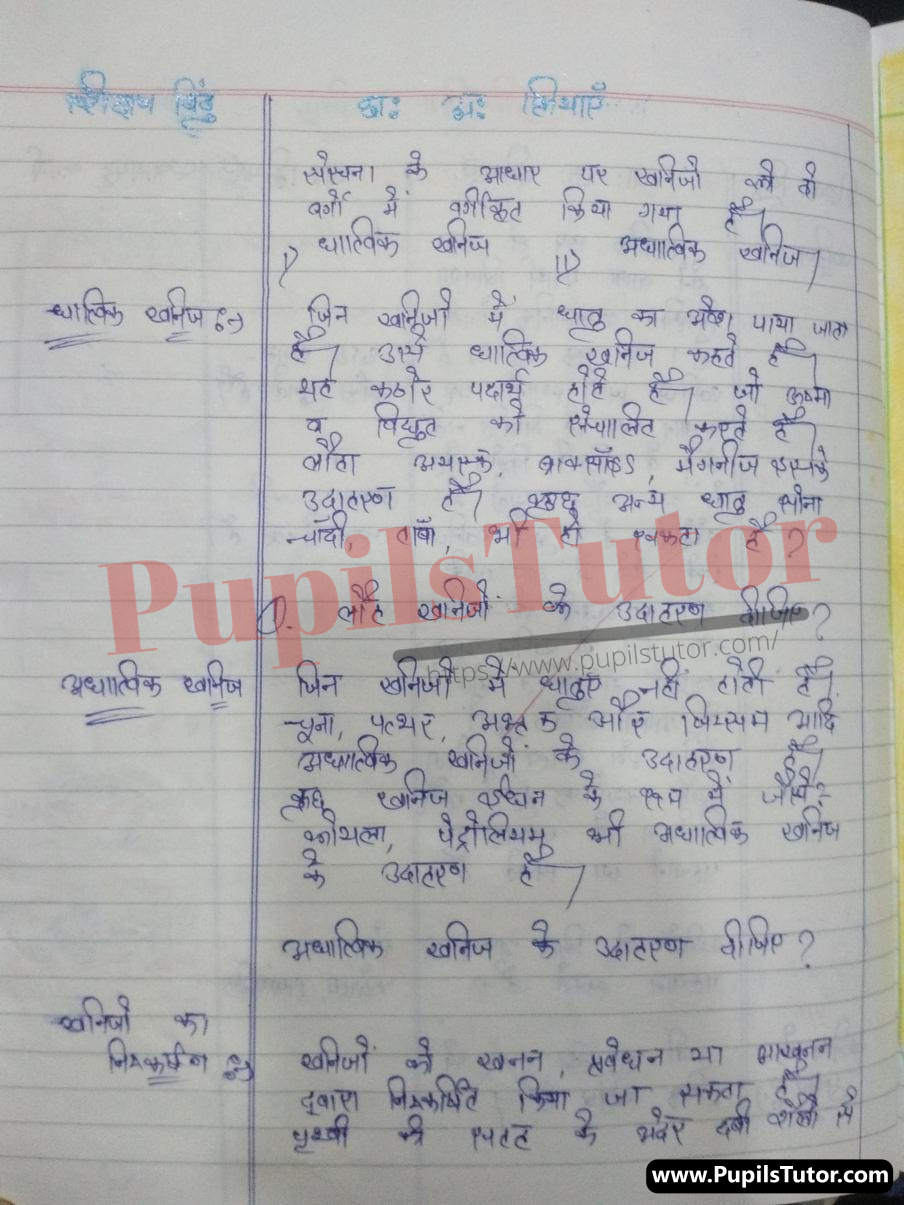 शिक्षण बिंदु छा: अ: क्रियाएँ
संरचना के आधार पर खनिजों को दो
वर्गों में वर्गीकित किया गया है।
i) धात्विक खनिज ii) अधात्विक खनिज।
धात्विक खनिज :-) जिन खनिजों में धातु का अंश पाया जाता
है। उसे धात्विक खनिज कहते हैं।
यह कठोर पदार्थ होते हैं। जो ऊष्मा
व विद्युत को संचालित करते हैं।
लौहा अयस्क, बाक्साइड, मैगनीज इसके
उदाहरण हैं। कुछ अन्य धातु सोना
चाँदी, ताँबा, भी हो सकता है?
PupilsTutor
Q. लौह खनिजों के उदाहरण दीजिए?
https://www.pupilstutor.com/
अधात्विक खनिज जिन खनिजों में धातुए नहीं होती हैं।
चूना, पत्थर, अभ्रक और जिप्सम आदि
अधात्विक खनिजों के उदाहरण हैं।
कुछ खनिज ईंधन के रूप में जैसे?
कोयला, पेट्रोलियम भी अधात्विक खनिज
के उदाहरण हैं।
अधात्विक खनिज के उदाहरण दीजिए?
खनिजों का
निष्कर्षण :-) खनिजों को खनन, प्रवेधन या आखनन
द्वारा निष्कर्षित किया जा सकता है।
पृथ्वी की सतह के अंदर दबी शैलों से
www.PupilsTutor.com